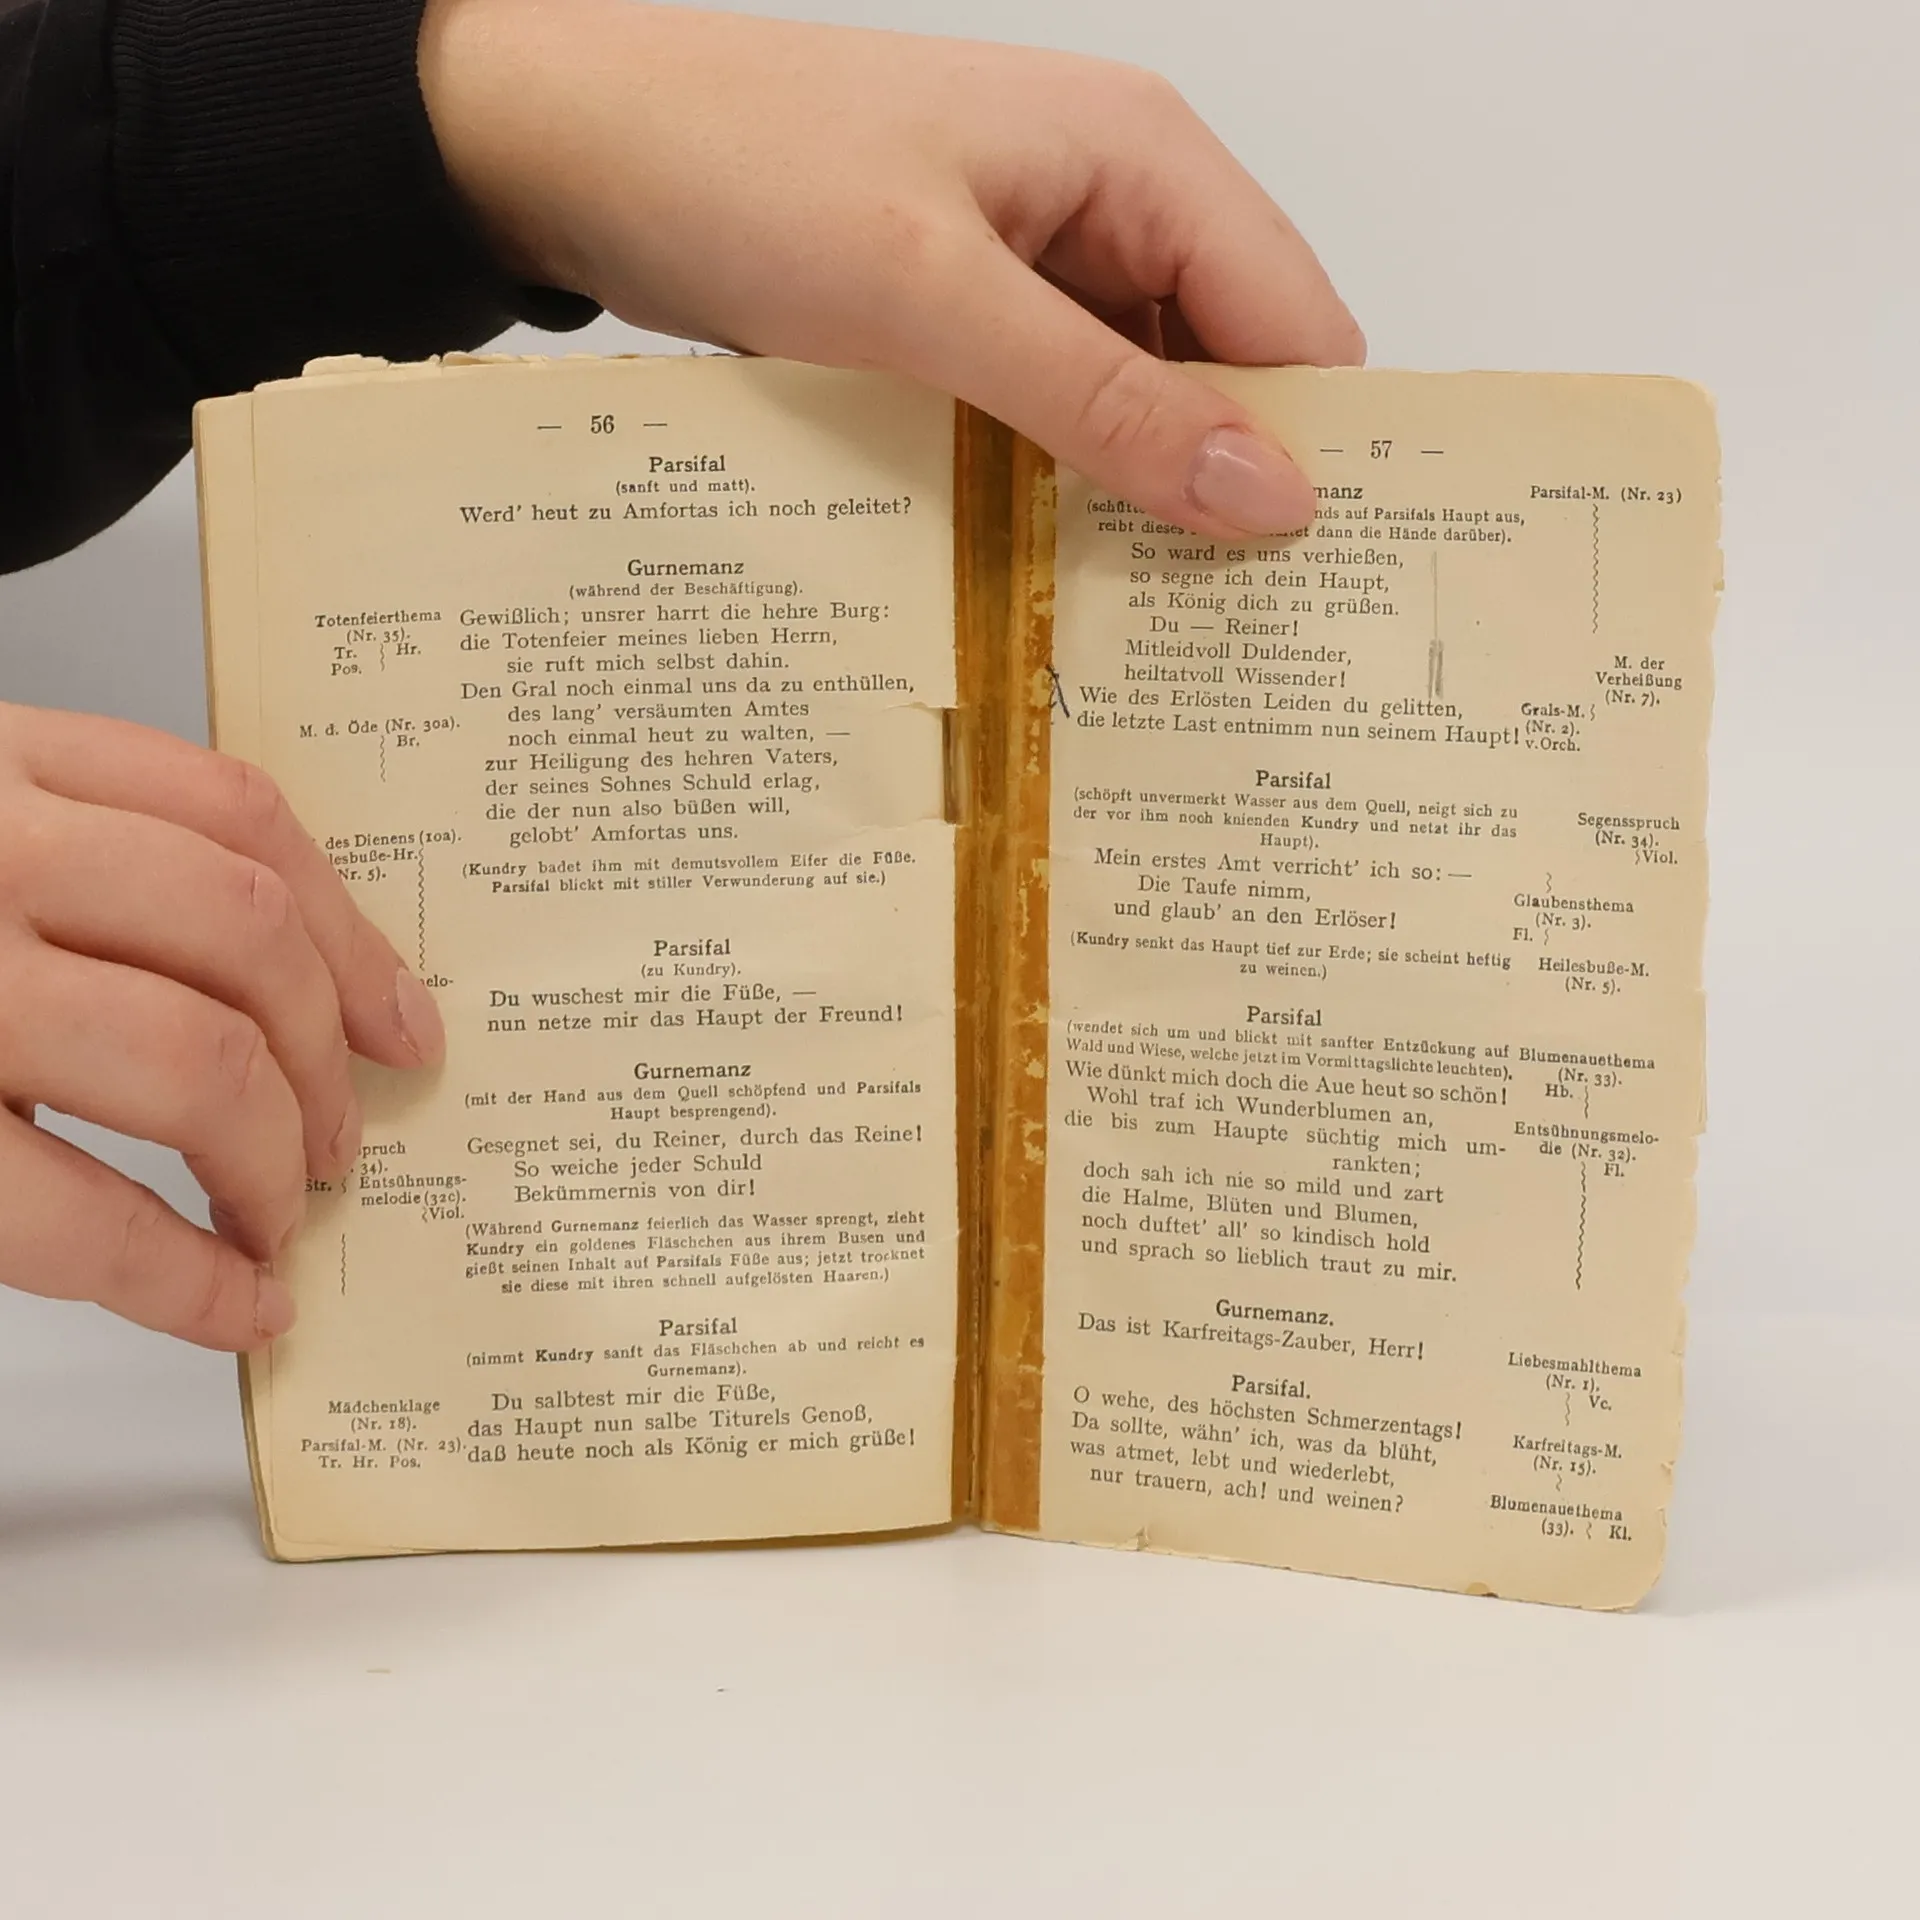 — 56 —
Parsifal
(sanft und matt).
Werd' heut zu Amfortas ich noch geleitet?
Gurnemanz
(während der Beschäftigung).
Totenfeierthema
(Nr. 35).
Tr. Hr.
Pos.
Gewißlich; unsrer harrt die hehre Burg:
die Totenfeier meines lieben Herrn,
sie ruft mich selbst dahin.
Den Gral noch einmal uns da zu enthüllen,
des lang' versäumten Amtes
noch einmal heut zu walten, —
zur Heiligung des hehren Vaters,
der seines Sohnes Schuld erlag,
die der nun also büßen will,
gelobt' Amfortas uns.
M. d. Öde (Nr. 30a).
Br.
des Dienens (10a).
lesbuße-Hr.
Nr. 5).
(Kundry badet ihm mit demutsvollem Eifer die Füße.
Parsifal blickt mit stiller Verwunderung auf sie.)
elo-
Parsifal
(zu Kundry).
Du wuschest mir die Füße, —
nun netze mir das Haupt der Freund!
Gurnemanz
(mit der Hand aus dem Quell schöpfend und Parsifals
Haupt besprengend).
Gesegnet sei, du Reiner, durch das Reine!
So weiche jeder Schuld
Bekümmernis von dir!
pruch
34).
Str. Entsühnungs-
melodie (32c).
Viol.
(Während Gurnemanz feierlich das Wasser sprengt, zieht
Kundry ein goldenes Fläschchen aus ihrem Busen und
gießt seinen Inhalt auf Parsifals Füße aus; jetzt trocknet
sie diese mit ihren schnell aufgelösten Haaren.)
Parsifal
(nimmt Kundry sanft das Fläschchen ab und reicht es
Gurnemanz).
Du salbtest mir die Füße,
das Haupt nun salbe Titurels Genoß,
daß heute noch als König er mich grüße!
Mädchenklage
(Nr. 18).
Parsifal-M. (Nr. 23).
Tr. Hr. Pos.
— 57 —
manz
(schütte nds auf Parsifals Haupt aus,
reibt dieses dann die Hände darüber).
Parsifal-M. (Nr. 23)
So ward es uns verhießen,
so segne ich dein Haupt,
als König dich zu grüßen.
Du — Reiner!
Mitleidvoll Duldender,
heiltatvoll Wissender!
Wie des Erlösten Leiden du gelitten,
die letzte Last entnimm nun seinem Haupt!
M. der
Verheißung
(Nr. 7).
Grals-M.
(Nr. 2).
v.Orch.
Parsifal
(schöpft unvermerkt Wasser aus dem Quell, neigt sich zu
der vor ihm noch knienden Kundry und netzt ihr das
Haupt).
Mein erstes Amt verricht' ich so: —
Die Taufe nimm,
und glaub' an den Erlöser!
Segensspruch
(Nr. 34).
Viol.
Glaubensthema
(Nr. 3).
Fl.
(Kundry senkt das Haupt tief zur Erde; sie scheint heftig
zu weinen.)
Heilesbuße-M.
(Nr. 5).
Parsifal
(wendet sich um und blickt mit sanfter Entzückung auf
Wald und Wiese, welche jetzt im Vormittagslichte leuchten).
Wie dünkt mich doch die Aue heut so schön!
Wohl traf ich Wunderblumen an,
die bis zum Haupte süchtig mich um-
rankten;
doch sah ich nie so mild und zart
die Halme, Blüten und Blumen,
noch duftet' all' so kindisch hold
und sprach so lieblich traut zu mir.
Blumenauethema
(Nr. 33).
Hb.
Entsühnungsmelo-
die (Nr. 32).
Fl.
Gurnemanz.
Das ist Karfreitags-Zauber, Herr!
Parsifal.
O wehe, des höchsten Schmerzentags!
Da sollte, wähn' ich, was da blüht,
was atmet, lebt und wiederlebt,
nur trauern, ach! und weinen?
Liebesmahlthema
(Nr. 1).
Vc.
Karfreitags-M.
(Nr. 15).
Blumenauethema
(33). Kl.